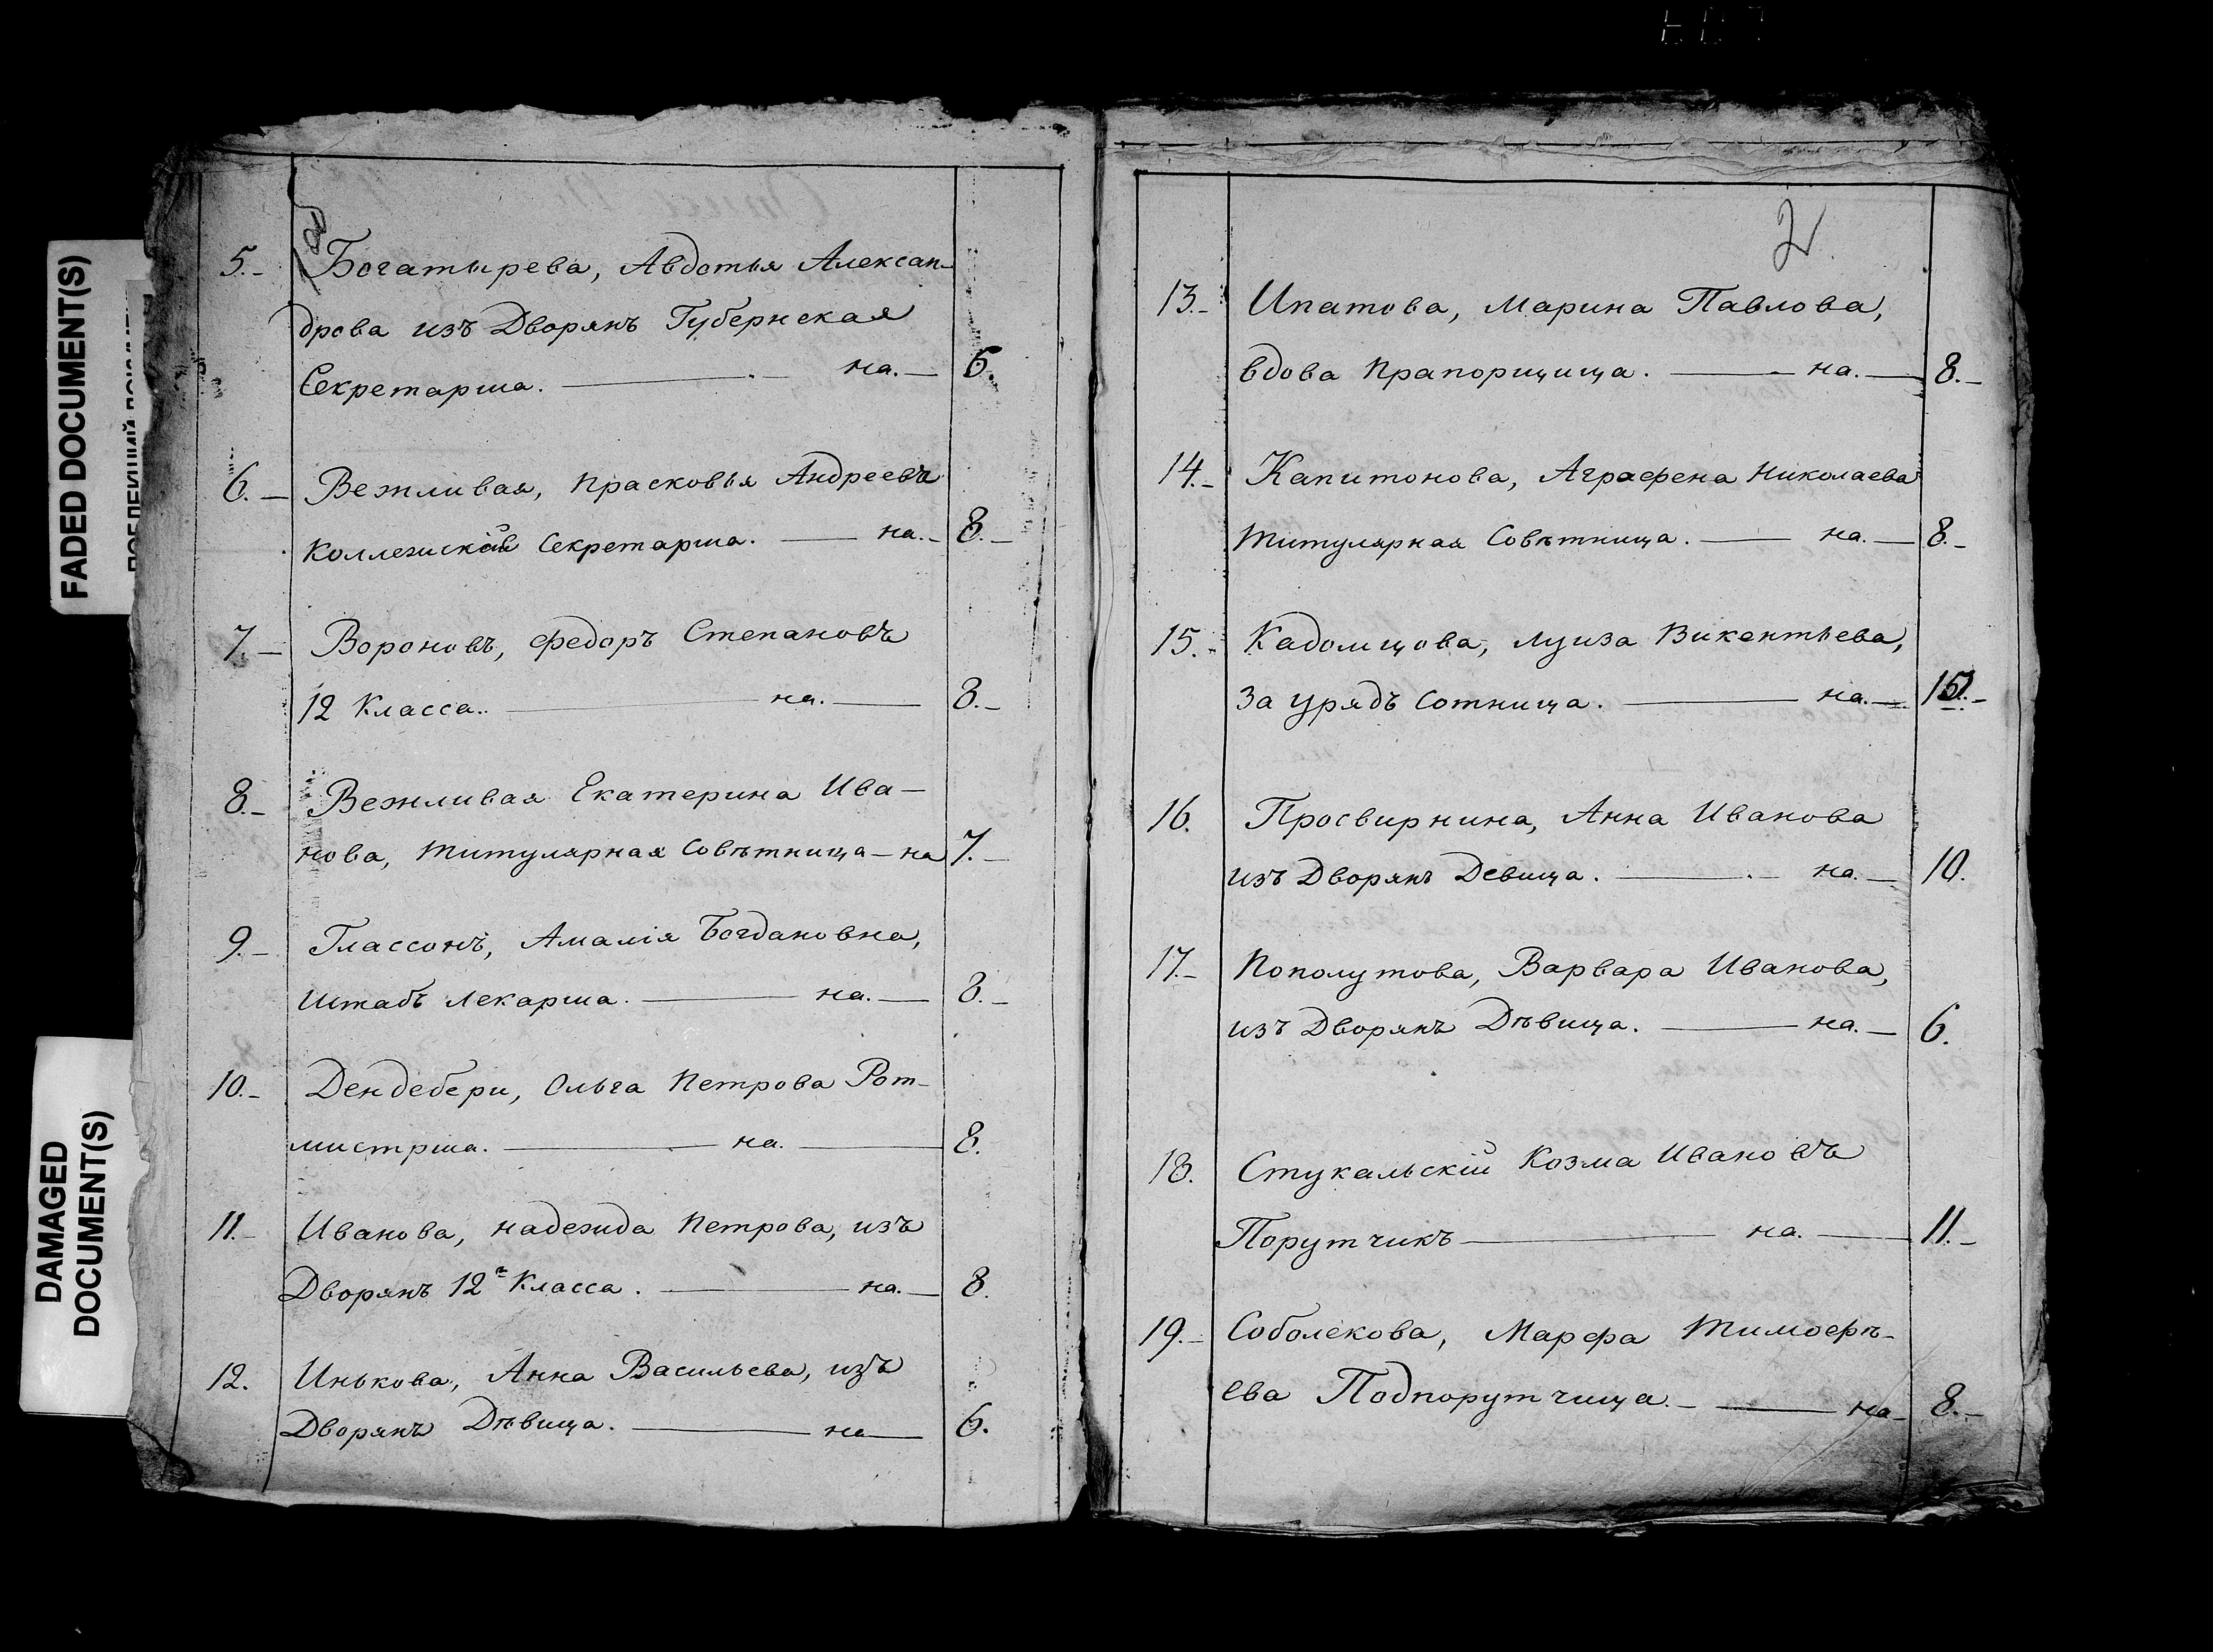 FADED DOCUMENT(S)
DAMAGED
DOCUMENT(S)
5.- Богатырева, Авдотья Алексан-
дрова изъ Дворянъ Губернская
Секретарша. — на. — 6.
6. — Вежливая, Прасковья Андреевъ
Коллежская Секретарша. — на. - 8. -
7. — Вороновъ, Федоръ Степановъ
12 Класса. — на. — 8. -
8. - Вежливая Екатерина Ива-
нова, Титулярная Совѣтница - на 7. -
9. - Глассонъ, Амалія Богдановна,
Штабъ Лекарша. — на. — 8. -
10. - Дендебери, Ольга Петрова Рот-
мистрша. — на. — 8.
11. - Иванова, Надежда Петрова, изъ
Дворянъ 12г Класса. — на. — 8.
12. Инькова, Анна Васильева, изъ
Дворянъ Дѣвица. — на — 6.
2
13. - Ипатова, Марина Павлова,
вдова Прапорщица. — на. — 8. -
14. - Капитонова, Аграфена Николаева
Титулярная Совѣтница. — на. — 8. -
15. - Кадомцова, Луиза Викентьева,
За урядъ Сотница. — на. —
16. Просвирнина, Анна Иванова
изъ Дворянъ Девица. — на. — 10.
17. - Пополутова, Варвара Иванова,
изъ Дворянъ Дѣвица. — на. — 6.
18. Стукальскій Козма Ивановъ
Порутчикъ — на. — 11. -
19. - Соболекова, Марфа Тимофѣ-
ева Подпорутчица. - — на - 8. -